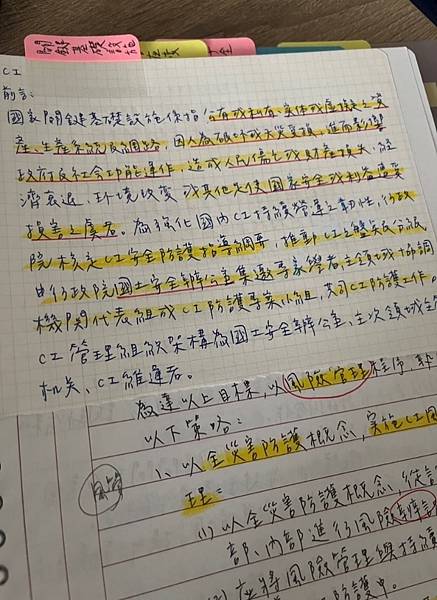 關鍵基礎設施
CI
前言:
國家關鍵基礎設施係指公有或私有、實體或虛擬之資
產、生產系統及網路,因人為破壞或天災受損,進而影響
政府及社會功能運作,造成人民傷亡或財產損失,經
濟衰退,環境改變或其他足使國家安全或利益遭受
損害之虞者。為強化國內CI持續營運之韌性,行政
院核定CI安全防護指導綱要,推動CI之盤點及分級
由行政院國土安全辦公室集邀專家學者,主領域或協調
機關代表組成CI防護專案小組,共同CI防護工作。
CI管理組織架構為國土安全辦公室、主次領域主
機關、CI維運者。
為達以上目標,以風險管理程序,執
以下策略:
1、以全災害防護概念,實施CI風
理:
(1)以全災害防護概念,從設
部、內部進行風險辨識
(2) 應將風險管理與持續
防護中。